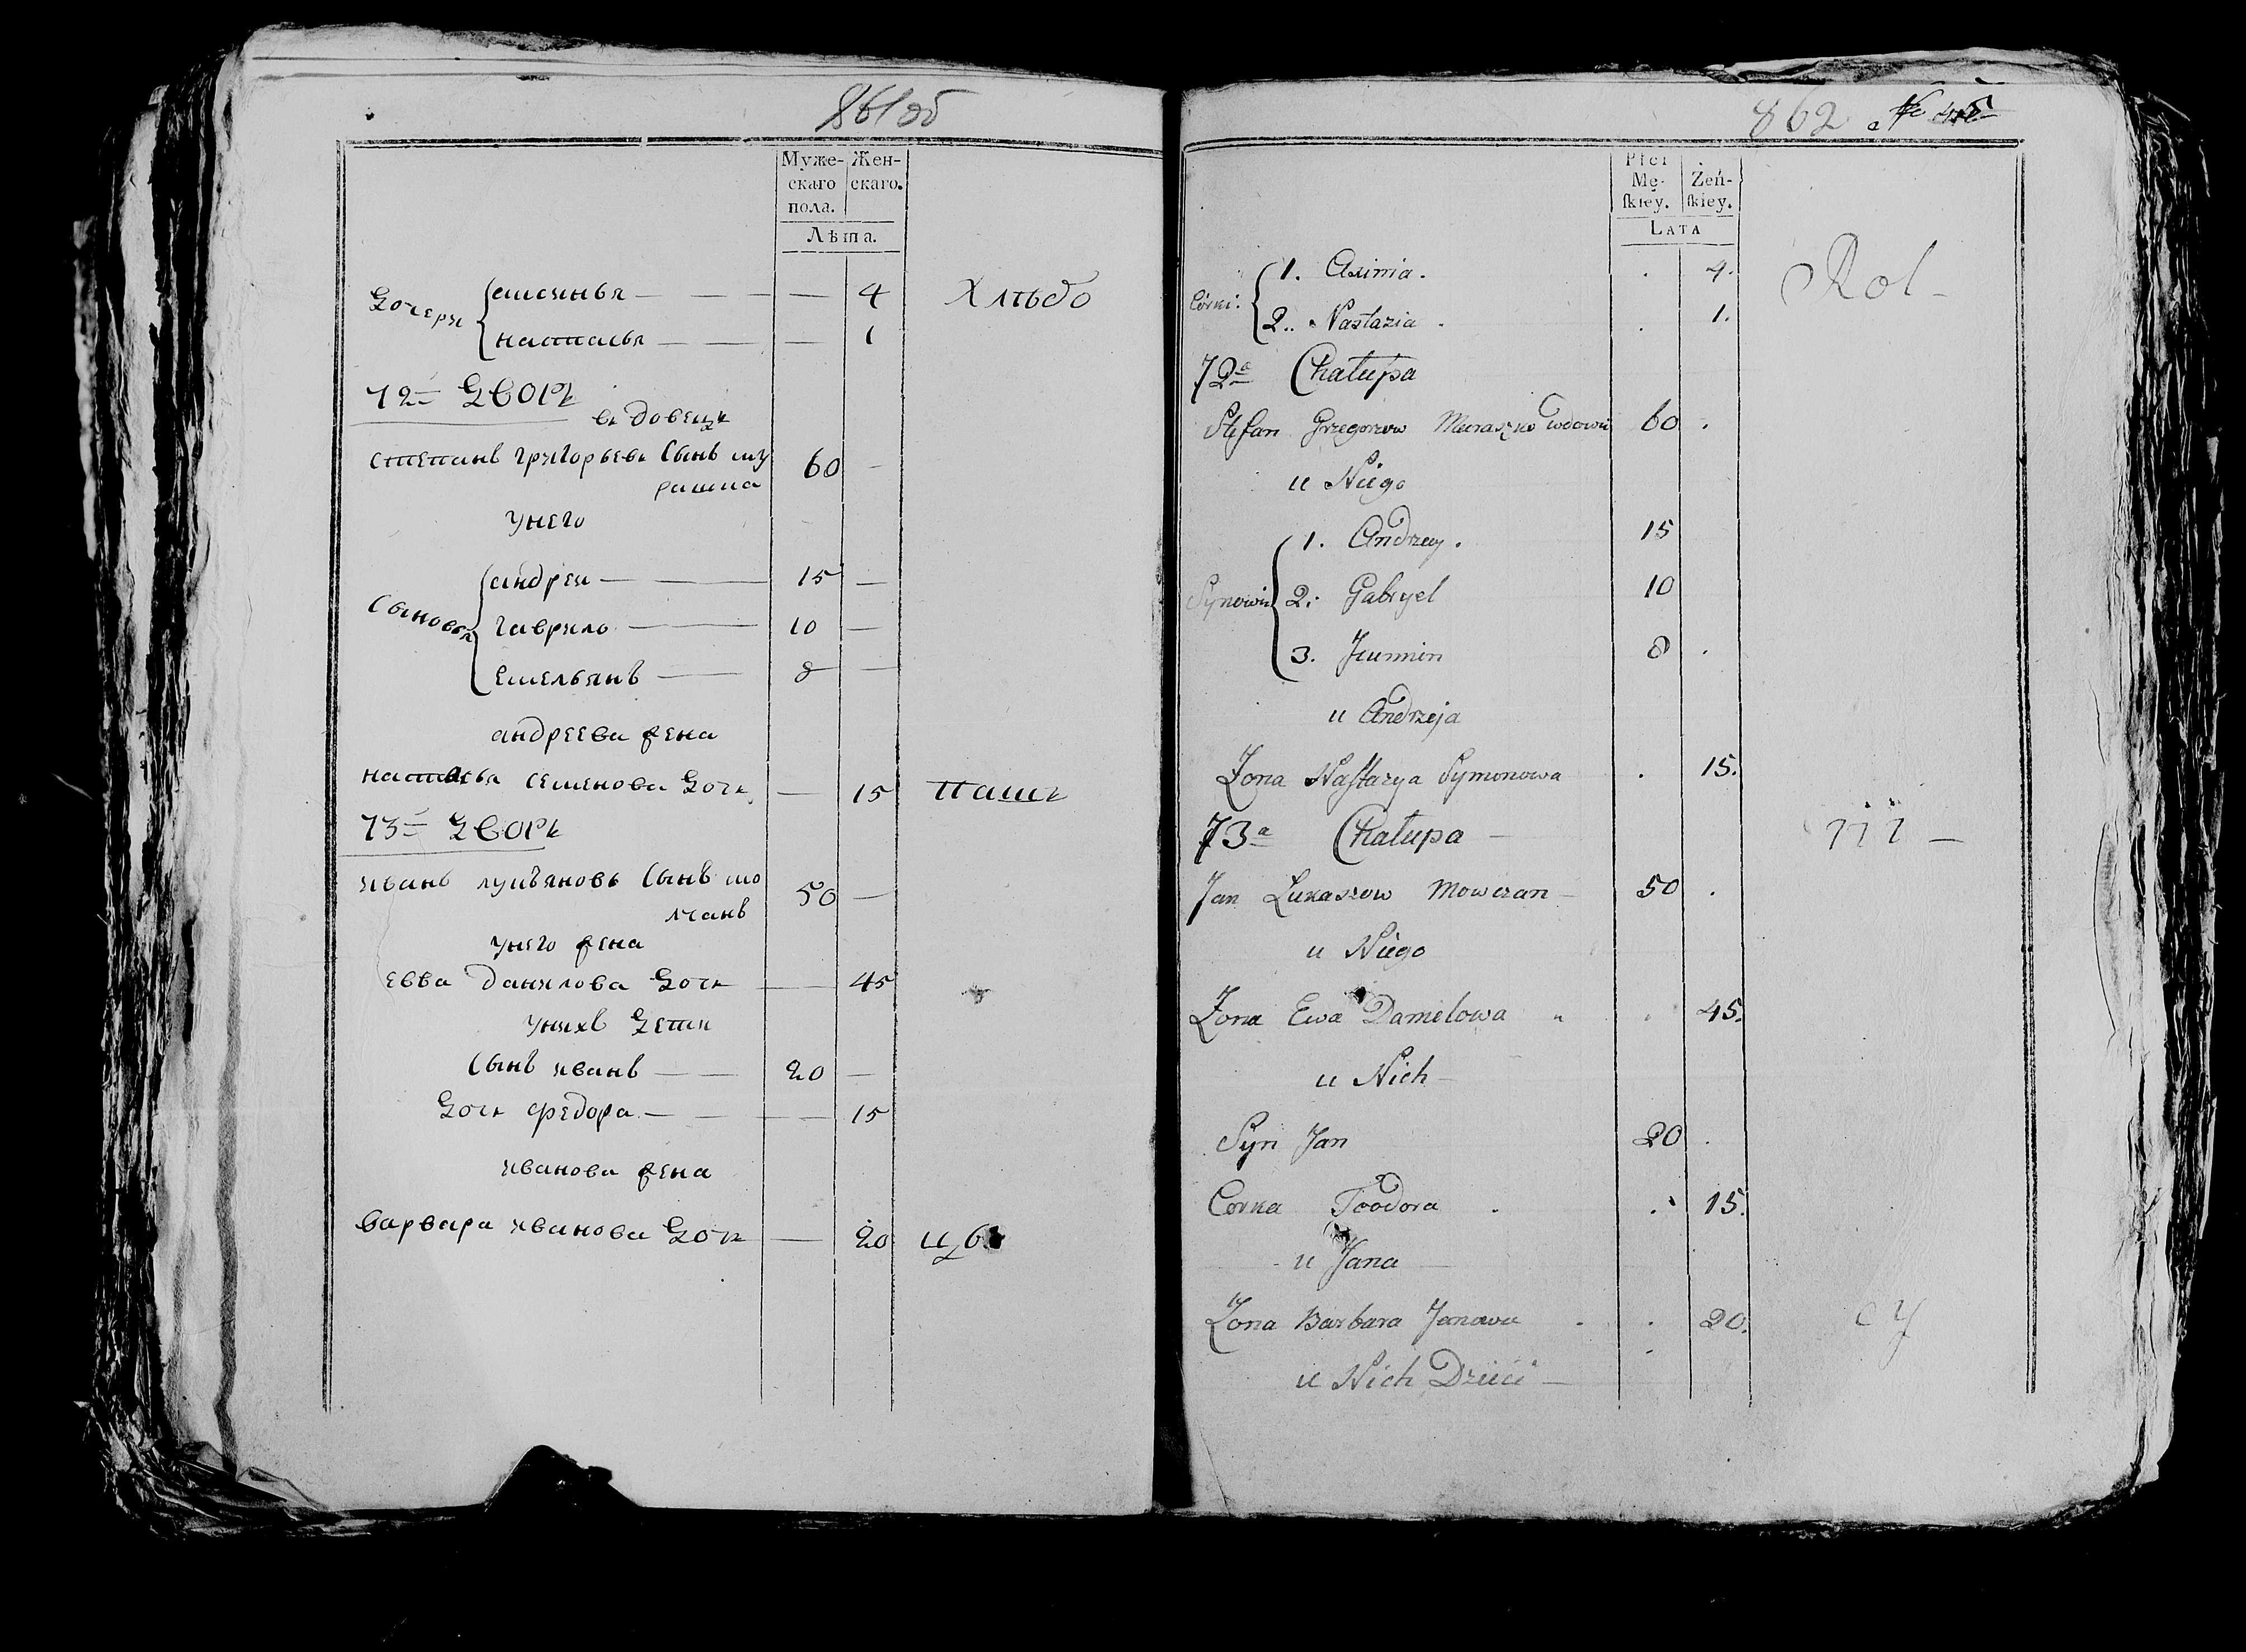 861об
Муже- Жен-
скаго скаго.
пола.
Лѣта.
Дочери
аксинья — — — — 4 Хлѣбо
настасья — — — 1
72 = дворъ
вдовецъ
степанъ григорьевъ сынъ му 60 —
рашка
унего
Сыновья
андреи — — 15 —
гаврило — 10 —
емельянъ — 8 —
андреева жена
настасья семенова дочь — 15 пашъ
73 = дворъ
иванъ лукьяновъ сынъ мо 50 —
лчанъ
унего жена
евва данилова дочь — 45
унихъ дети
сынъ иванъ — — 20 —
дочь федора — — — 15
иванова жена
варвара иванова дочь — 20
862 № 45
Płci
Mę- Żeń-
ſkiey. ſkiey.
LATA
Córki:
1. Axinia . . 4. Rol-
2.. Nastazia . . 1.
72a Chałupa
Stefan Grzegorzow Muraszko wdowiec 60 .
u Niego
Synowie
1. Andrzey . 15
2: Gabryel 10
3. Jeumien 8 .
u Andrzeja
Żona Naſtazya Symonowa . 15.
73a Chałupa —
Jan Łukaszow Mowczan — 50 .
u Niego
Żona Ewa Danielowa . 45.
u Nich —
Syn Jan 20 .
Corka Teodora . . 15.
u Jana
Żona Barbara Janowa . . 20. cy
u Nich Dzieci —